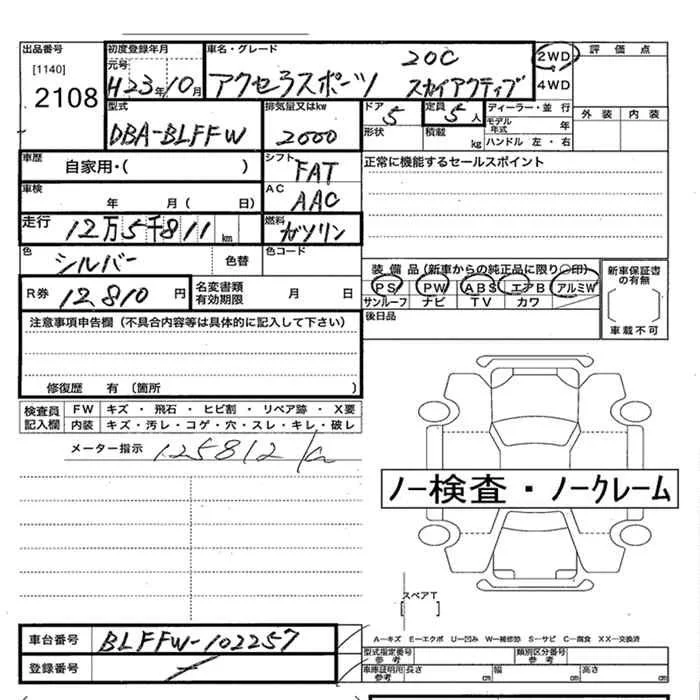 出品番号 初度登録年月 車名・グレード 20C 2WD 評価点
[1140] 元号 4WD
2108 H23年10月 アクセラスポーツ スカイアクティブ
型式 排気量又はkw ドア 定員 ディーラー・並行 外装 内装
DBA-BLFFW 2000 5 5人 モデル年式 年
形状 積載 kg ハンドル 左・右
車歴 自家用・( ) シフト FAT 正常に機能するセールスポイント
車検 年 月( 日) AC AAC
走行 12万5千811km 燃料 ガソリン
色 シルバー 色替 色コード 装備品(新車からの純正品に限り○印) 新車保証書の有無
PS PW ABS エアB アルミW
R券 12,810円 名変書類有効期限 月 日 サンルーフ ナビ TV カワ [ ]
後日品 車載不可
注意事項申告欄(不具合内容等は具体的に記入して下さい)
修復歴 有(箇所 )
検査員記入欄 FW キズ・飛石・ヒビ割・リペア跡・X要
内装 キズ・汚レ・コゲ・穴・スレ・キレ・破レ
メーター指示 125812km
ノー検査・ノークレーム
スペアT
[ ]
車台番号 BLFFW-102257
A—キズ E—エクボ U—凹み W—補修跡 S—サビ C—腐食 XX—交換済
型式指定番号 参考 類別区分番号 参考
登録番号 車庫証明用参考 長さ cm 幅 cm 高さ cm